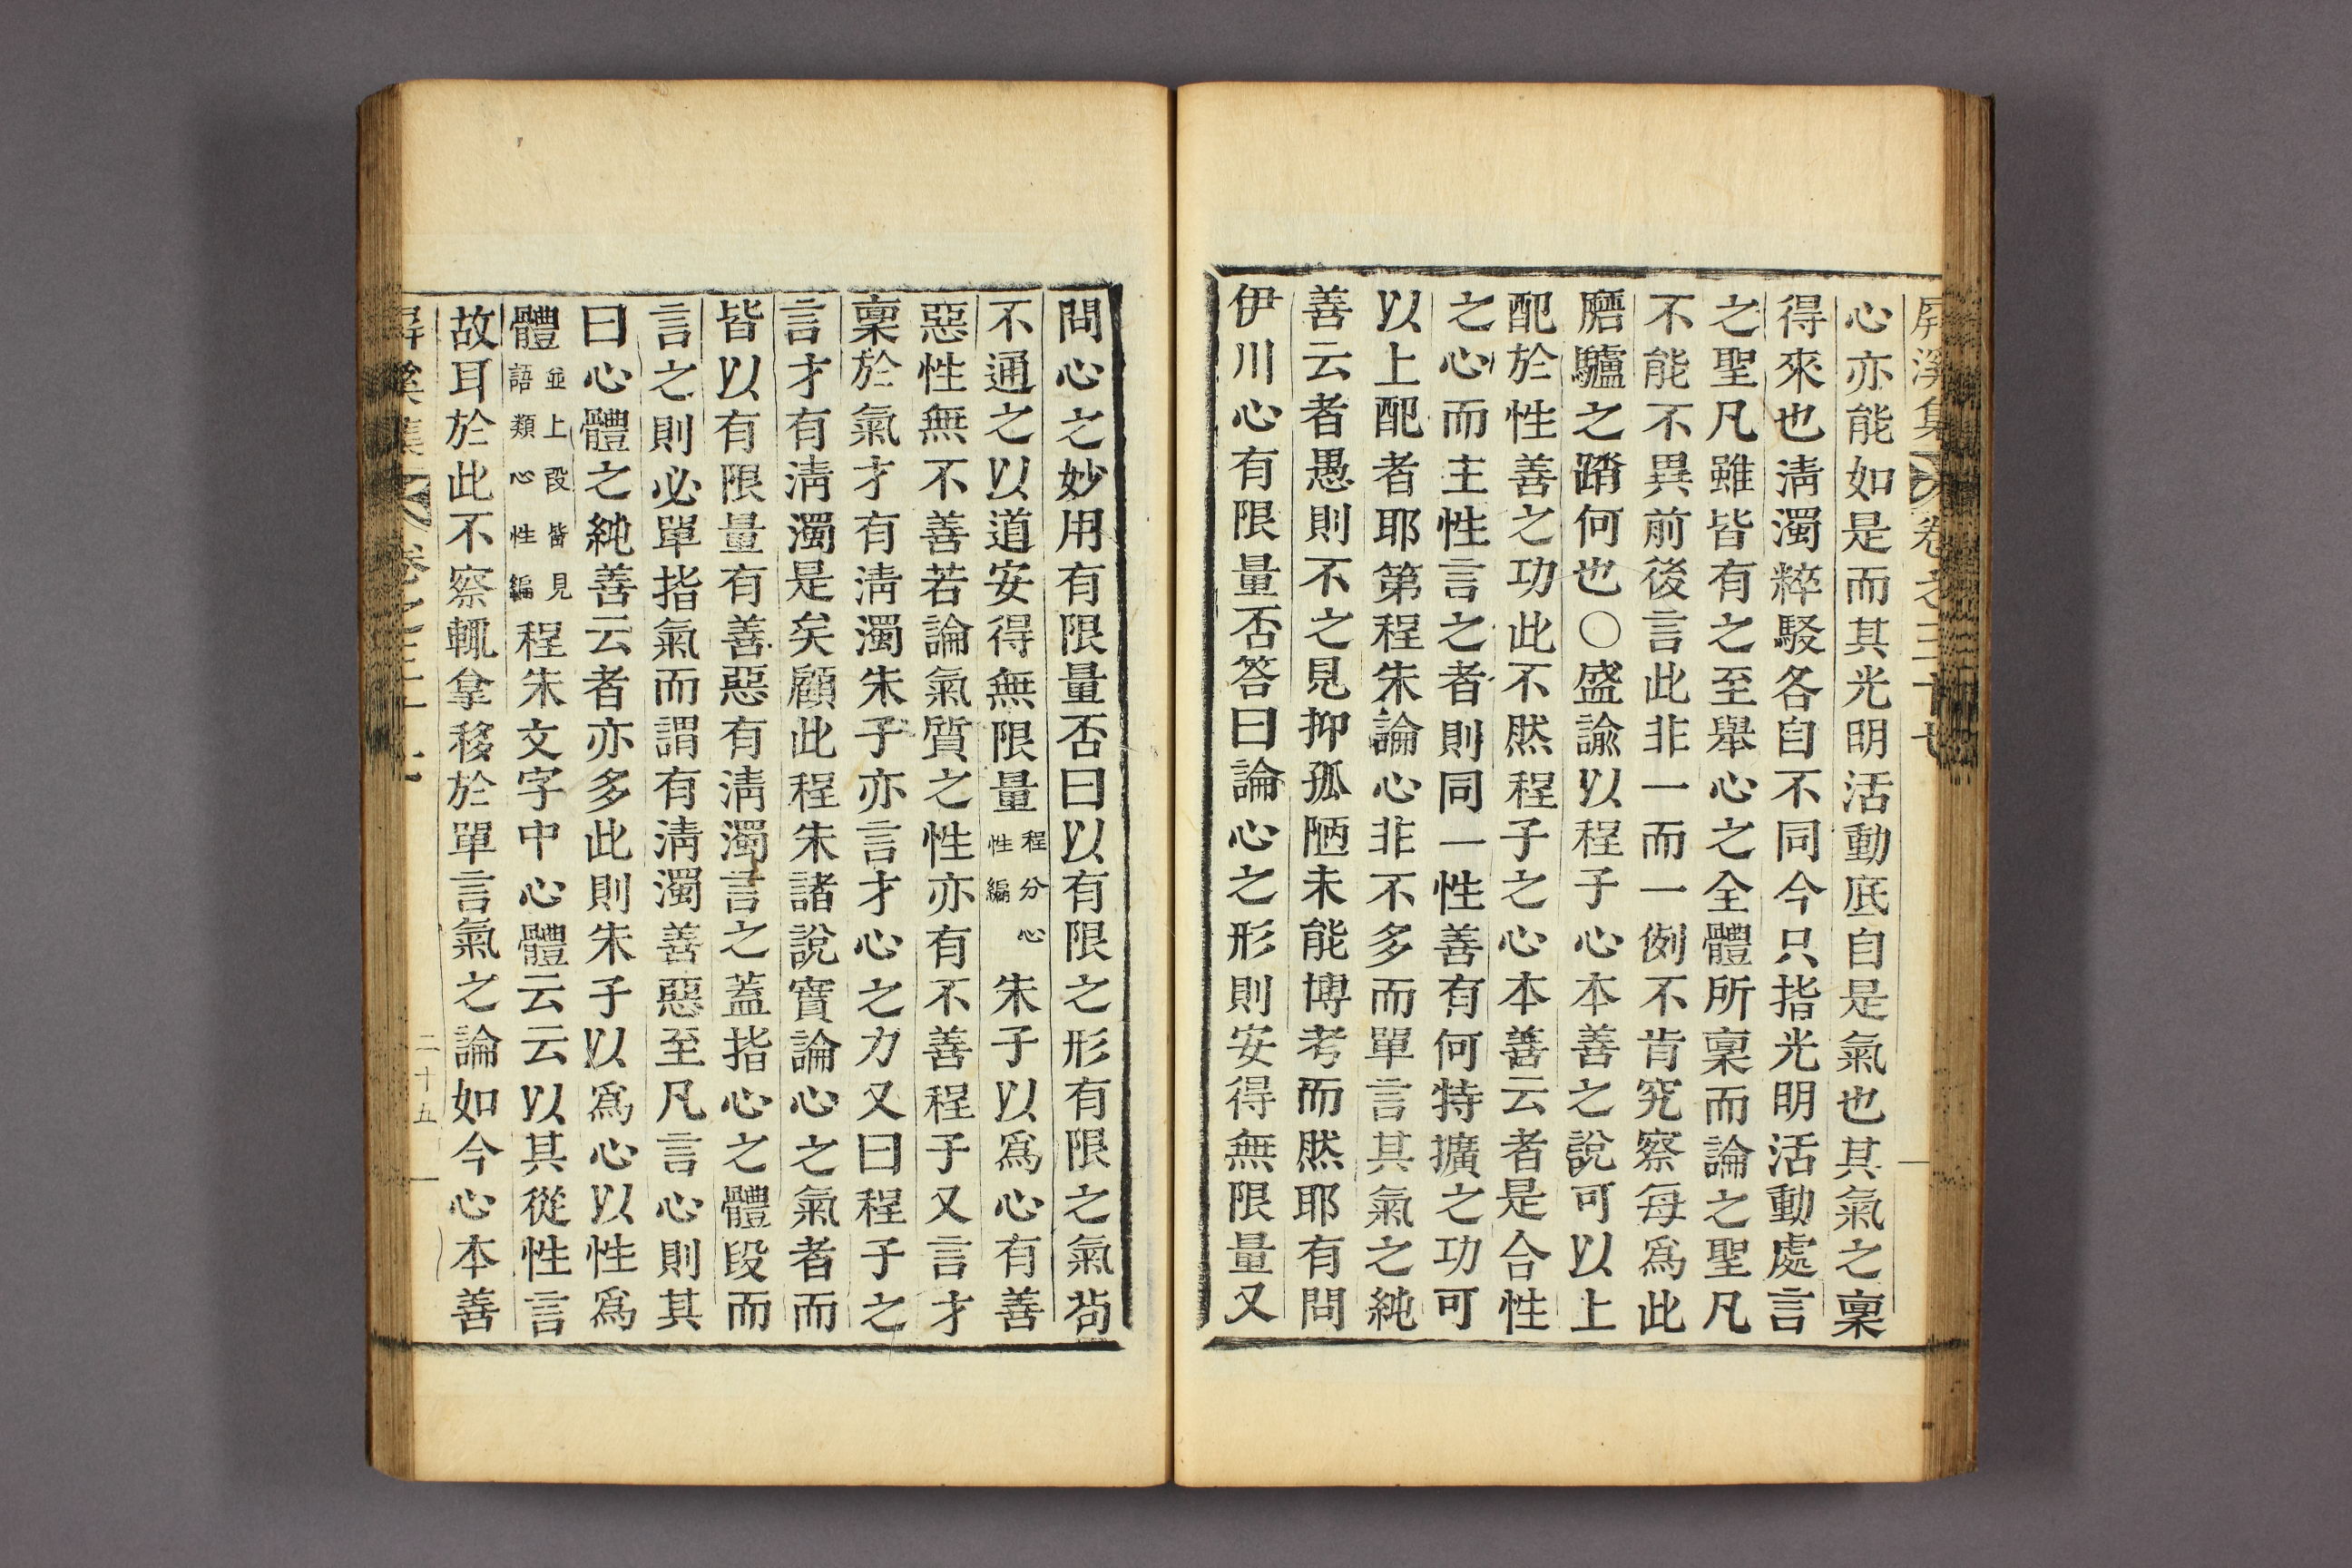 屛溪集 卷之三十七
心亦能如是而其光明活動底自是氣也其氣之稟
得來也淸濁粹駁各自不同今只指光明活動處言
之聖凡雖皆有之至舉心之全體所稟而論之聖凡
不能不異前後言此非一而一例不肯究察每爲此
磨驢之踏何也○盛諭以程子心本善之說可以上
配於性善之功此不然程子之心本善云者是合性
之心而主性言之者則同一性善有何特擴之功可
以上配者耶第程朱論心非不多而單言其氣之純
善云者愚則不之見抑孤陋未能博考而然耶有問
伊川心有限量否答曰論心之形則安得無限量又
問心之妙用有限量否曰以有限之形有限之氣茍
不通之以道安得無限量程分心性編朱子以爲心有善
惡性無不善若論氣質之性亦有不善程子又言才
稟於氣才有淸濁朱子亦言才心之力又曰程子之
言才有淸濁是矣顧此程朱諸說實論心之氣者而
皆以有限量有善惡有淸濁言之蓋指心之體段而
言之則必單指氣而謂有淸濁善惡至凡言心則其
曰心體之純善云者亦多此則朱子以爲心以性爲
體並上段皆見語類心性編程朱文字中心體云云以其從性言
故耳於此不察輒拿移於單言氣之論如今心本善
屛溪集 卷之三十七 二十五